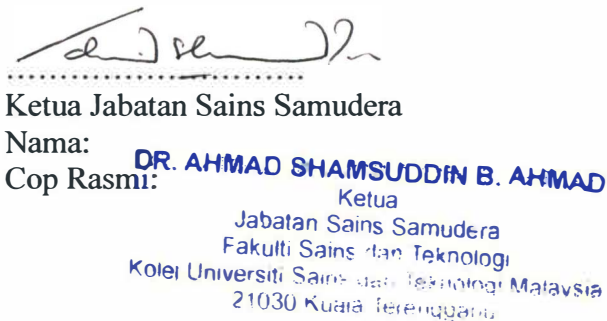 Ketua Jabatan Sains Samudera
Nama:
Cop Rasmi:
DR. AHMAD SHAMSUDDIN B. AHMAD
Ketua
Jabatan Sains Samudera
Fakulti Sains dan Teknologi
Kolej Universiti Sains dan Teknologi Malaysia
21030 Kuala Terengganu